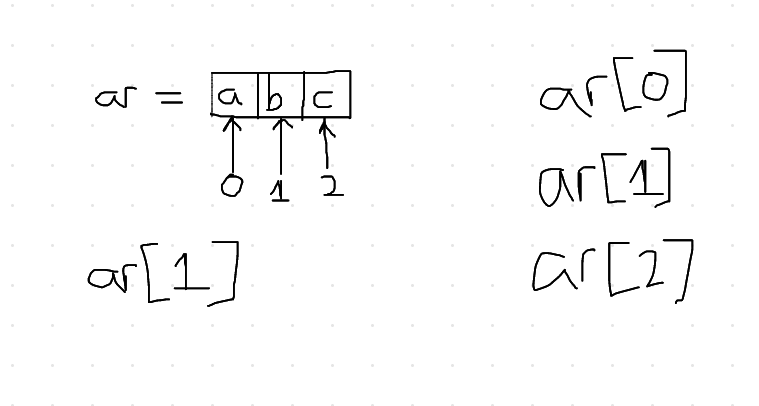 ar = a b c
0 1 2
ar[1]
ar[0]
ar[1]
ar[2]